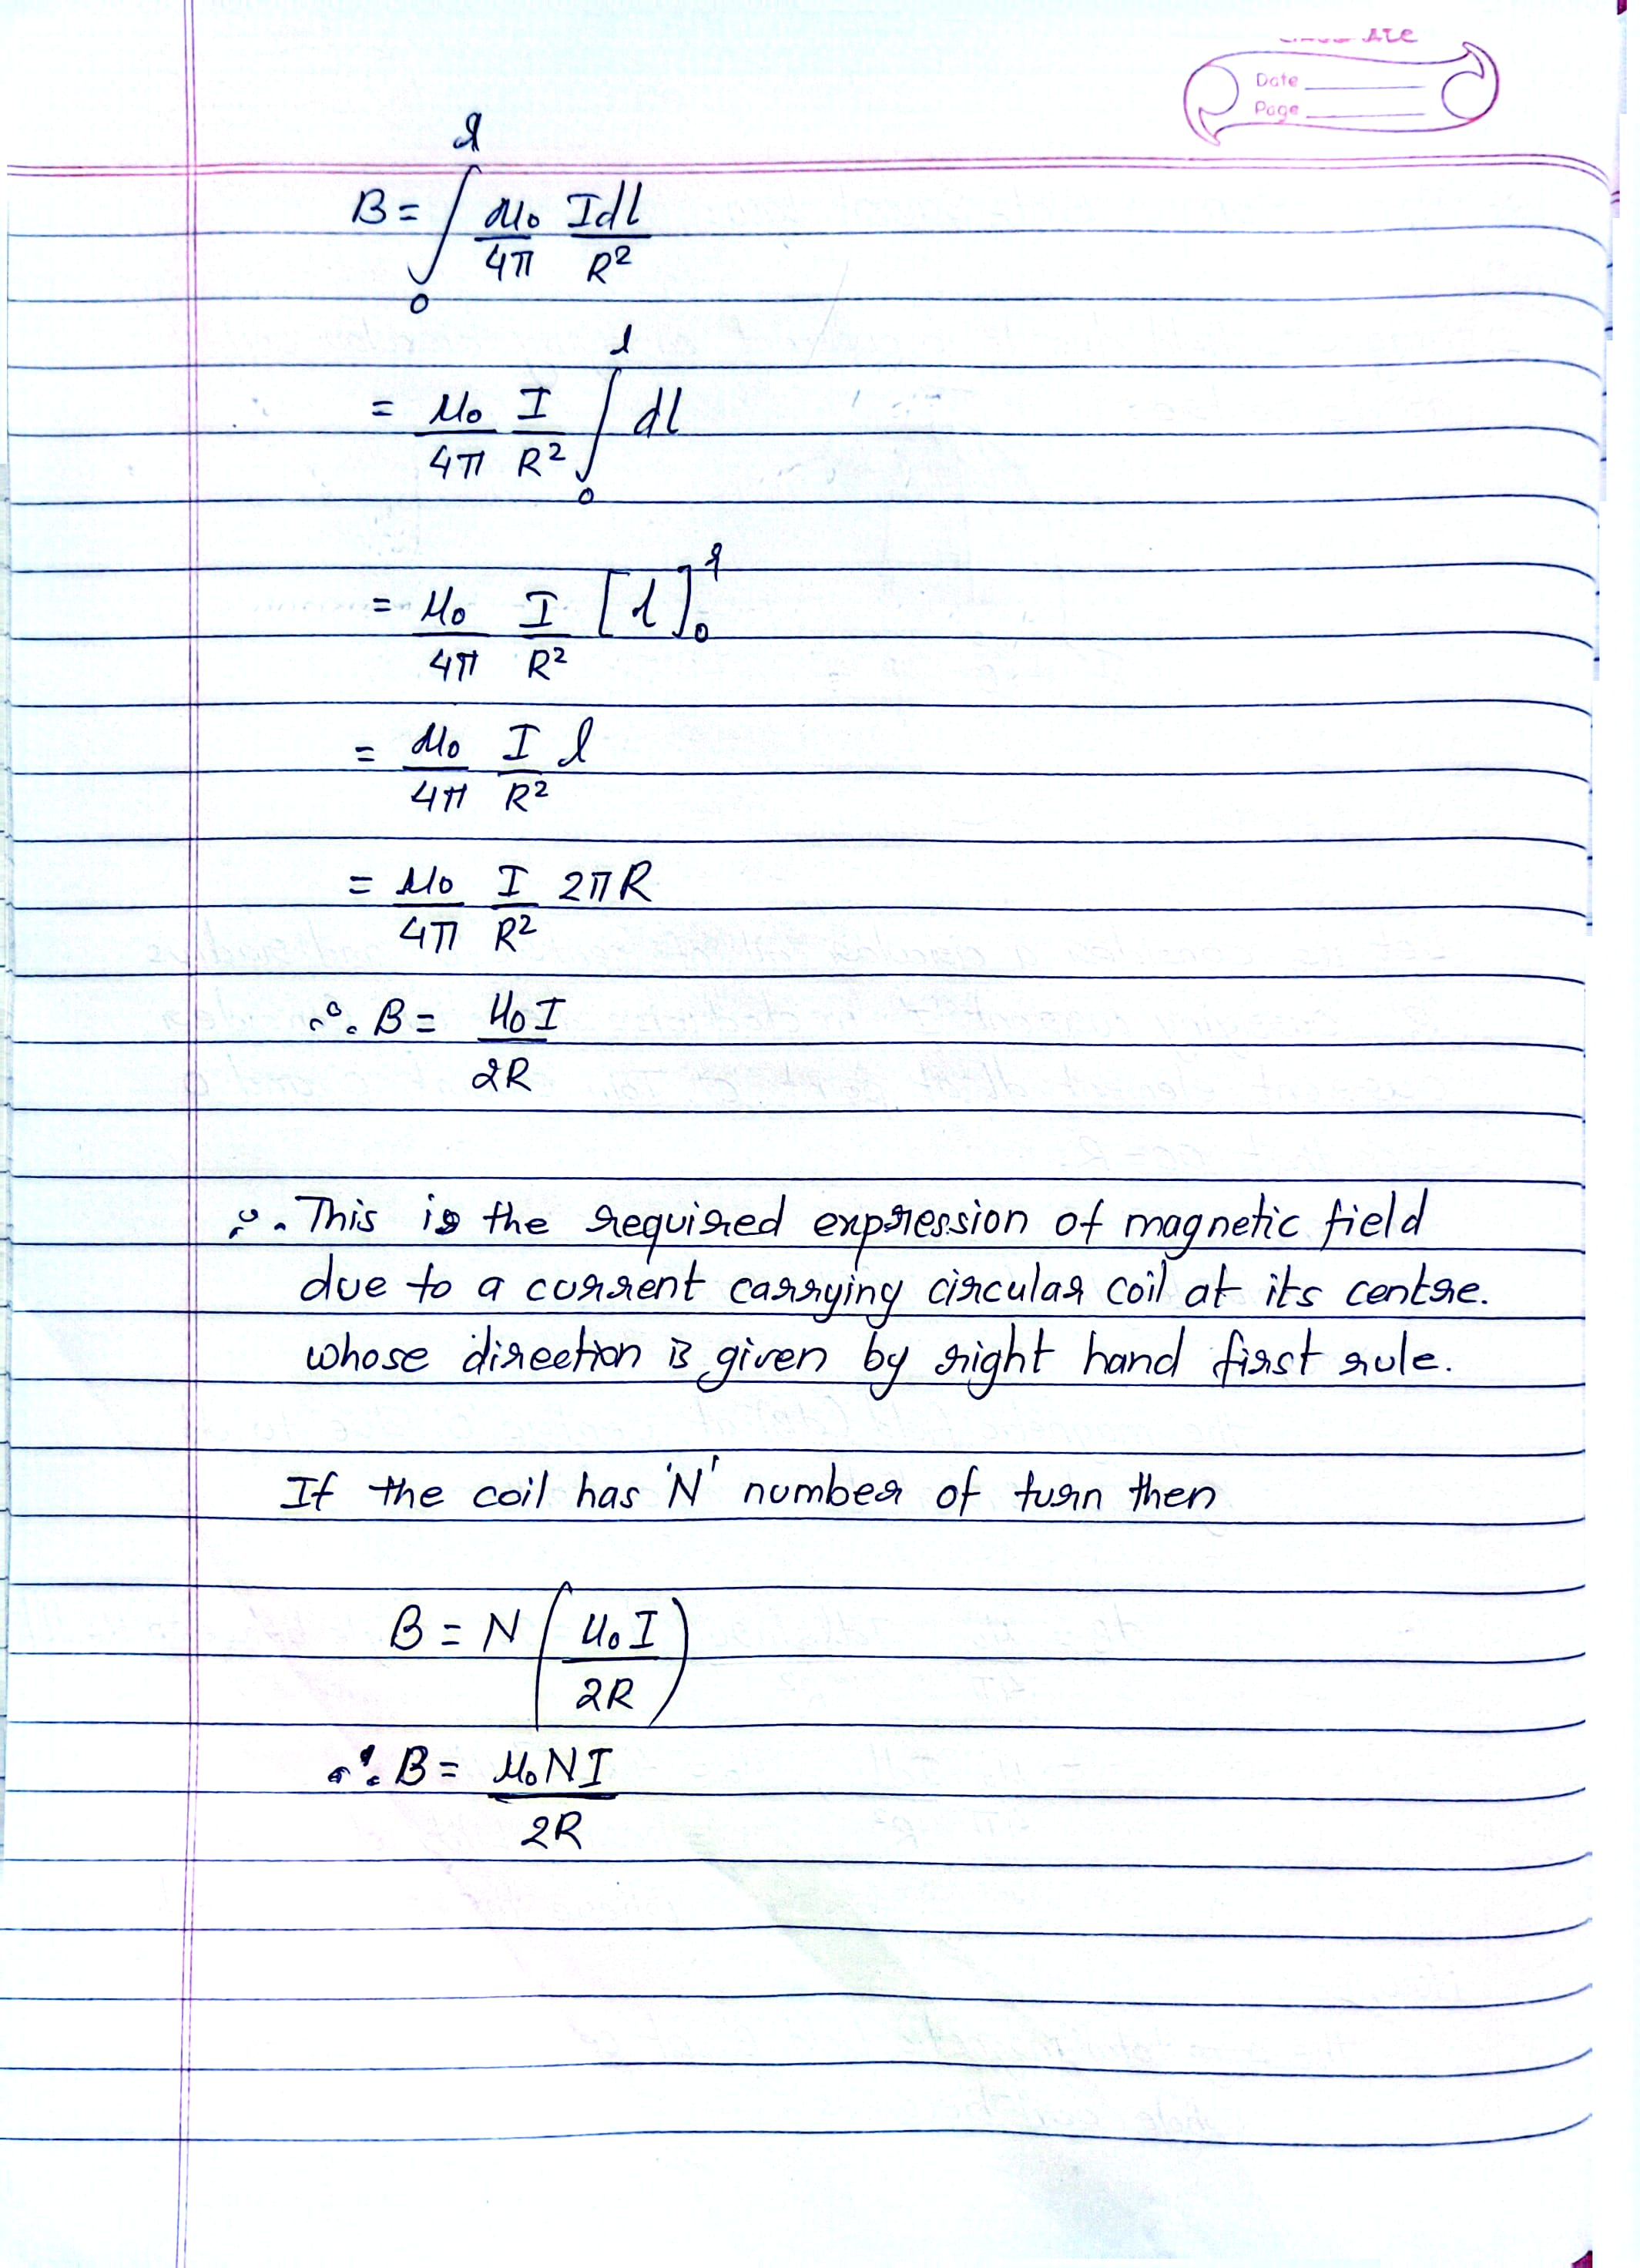 Date
Page
B = ∫₀ˡ μ₀/4π Idl/R²
= μ₀/4π I/R² ∫₀ˡ dl
= μ₀/4π I/R² [l]₀ˡ
= μ₀/4π I/R² l
= μ₀/4π I/R² 2πR
∴ B = μ₀I/2R
∴ This is the required expression of magnetic field
due to a current carrying circular coil at its centre.
whose direction is given by right hand first rule.
If the coil has 'N' number of turn then
B = N(μ₀I/2R)
∴ B = μ₀NI/2R